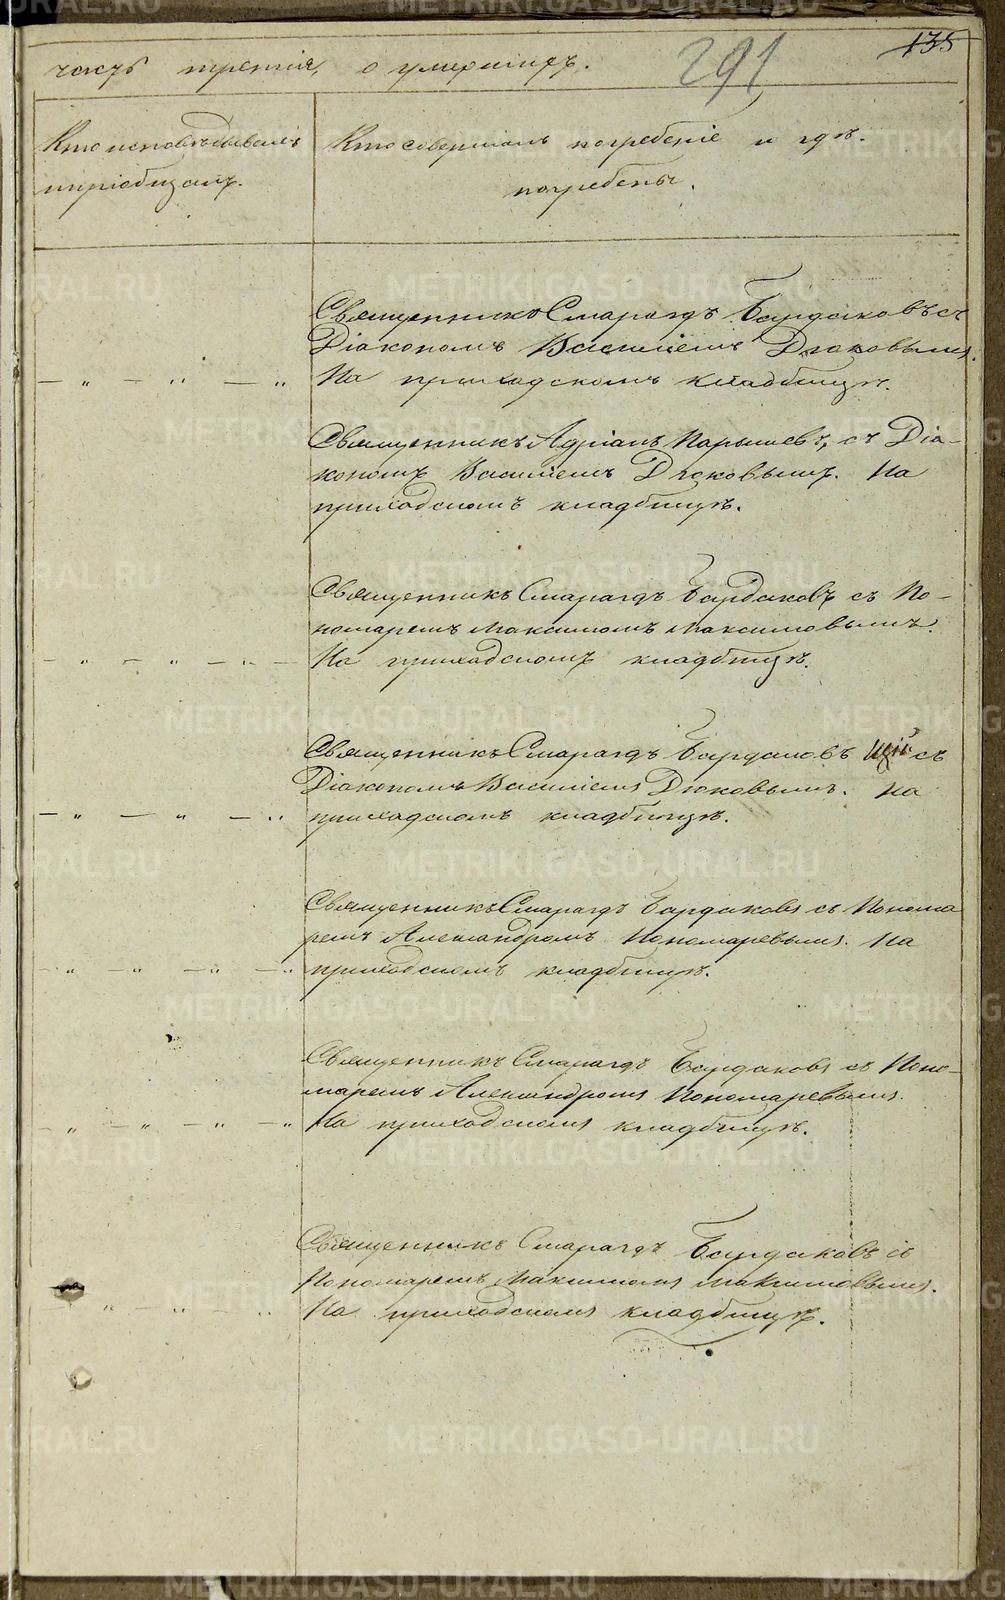 135
291
часть третія, о умершихъ.
Кто исповѣдывалъ
и пріобщалъ.
Кто совершалъ погребеніе и гдѣ
погребены.
Священникъ Смарагдъ Бардаковъ съ
Діакономъ Василіемъ Дюковымъ.
— „ — „ — „ На приходскомъ кладбищѣ.
Священникъ Адріанъ Парышевъ, съ Діа-
кономъ Василіемъ Дюковымъ. На
приходскомъ кладбищѣ.
Священникъ Смарагдъ Бардаковъ съ По-
номаремъ Максимомъ Максимовымъ.
— „ — „ — „ — На приходскомъ кладбищѣ.
Священникъ Смарагдъ Бардаковъ съ
Діакономъ Василіемъ Дюковымъ. На
— „ — „ — „ приходскомъ кладбищѣ.
Священникъ Смарагдъ Бардаковъ съ Понома
ремъ Александромъ Пономаревымъ. На
— „ — „ — „ — „ приходскомъ кладбищѣ.
Священникъ Смарагдъ Бардаковъ съ Поно-
маремъ Александромъ Пономаревымъ.
— „ — „ — „ — „ На приходскомъ кладбищѣ.
Священникъ Смарагдъ Бардаковъ съ
Пономаремъ Максимомъ Максимовымъ.
— „ — „ — „ На приходскомъ кладбищѣ.
METRIKI.GASO-URAL.RU